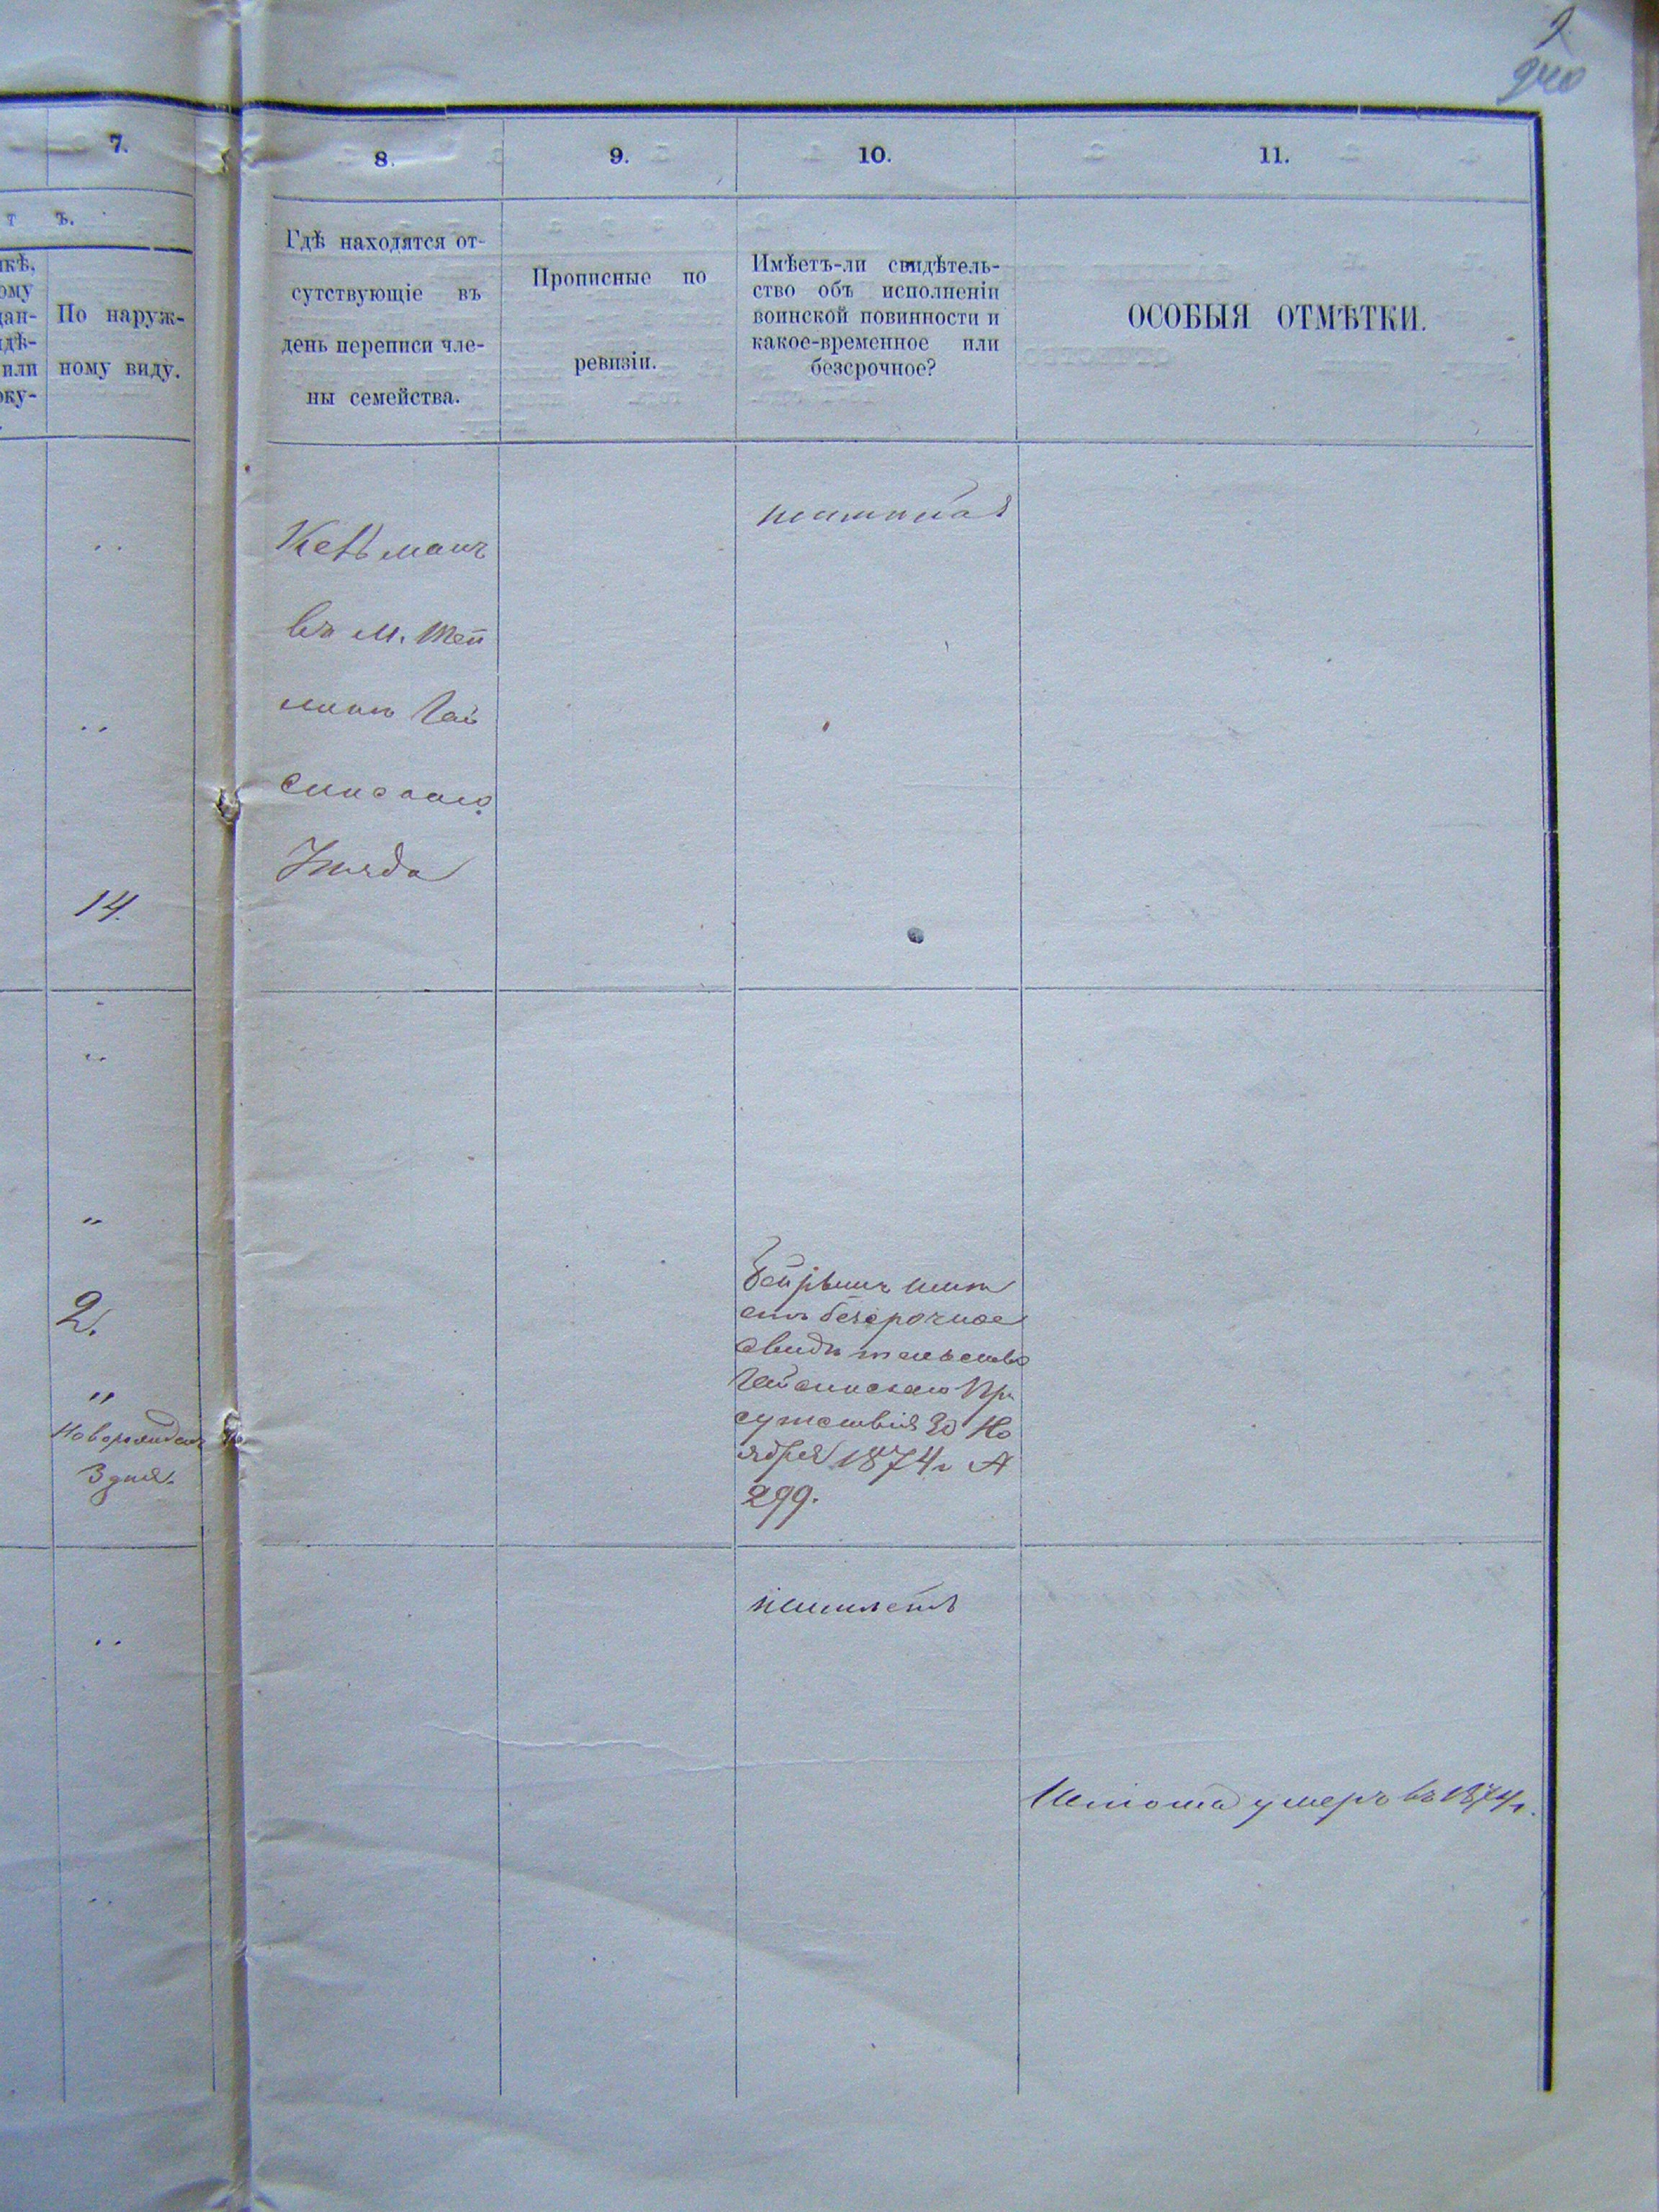 240
7.
8.
9.
10.
11.
т ъ.
По наруж-
ному виду.
Гдѣ находятся от-
сутствующіе въ
день переписи чле-
ны семейства.
Прописные по
ревизіи.
Имѣетъ-ли свидѣтель-
ство объ исполненіи
воинской повинности и
какое-временное или
безсрочное?
ОСОБЫЯ ОТМѢТКИ.
въ м.
Гай
синскаго
Уѣзда
14.
2.
„
Новорожден
3 дня.
имѣ
етъ безсрочное
свидѣтельство
Гайсинскаго При
сутствія 30 Но
ября 1874 г №
299.
неимѣетъ
умеръ въ 1874 г.